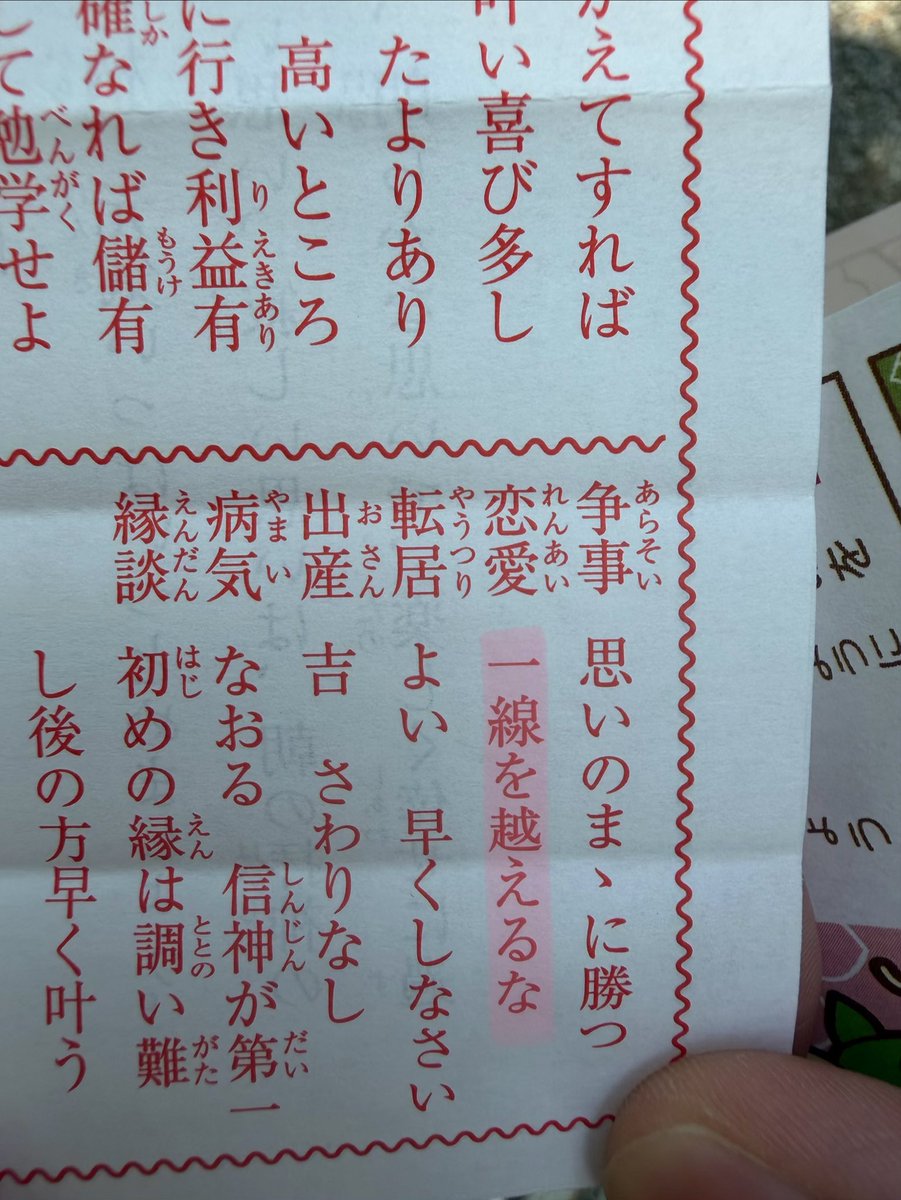 えてすれば
叶い喜び多し
たよりあり
高いところ
に行き利益有
確なれば儲有
して勉学せよ
争事 思いのまゝに勝つ
恋愛 一線を越えるな
転居 よい 早くしなさい
出産 吉 さわりなし
病気 なおる 信神が第一
縁談 初めの縁は調い難
し後の方早く叶う